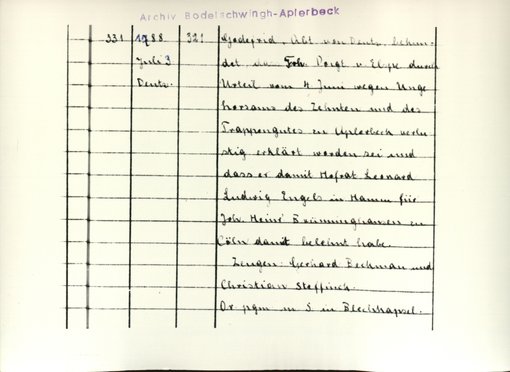 Archiv Bodelschwingh-Aplerbeck
331 1788 321 Godefrid, Abt von Deutz, bekun-
Juli 3 det, da Frh. Voigt v. Elspe durch
Deutz. Urteil vom 4 Juni wegen Unge
horsams des Zehnten und des
Trappengutes zu Aplerbeck verlu
stig erklärt worden sei und
dass er damit Hofrat Leonard
Ludwig Engels in Hamm für
Joh. Heinr Brünninghausen zu
Cöln damit belehnt habe.
Zeugen: Gerhard Beckman und
Christian Steffinck.
Or. pgm m S. in Blechkapsel.